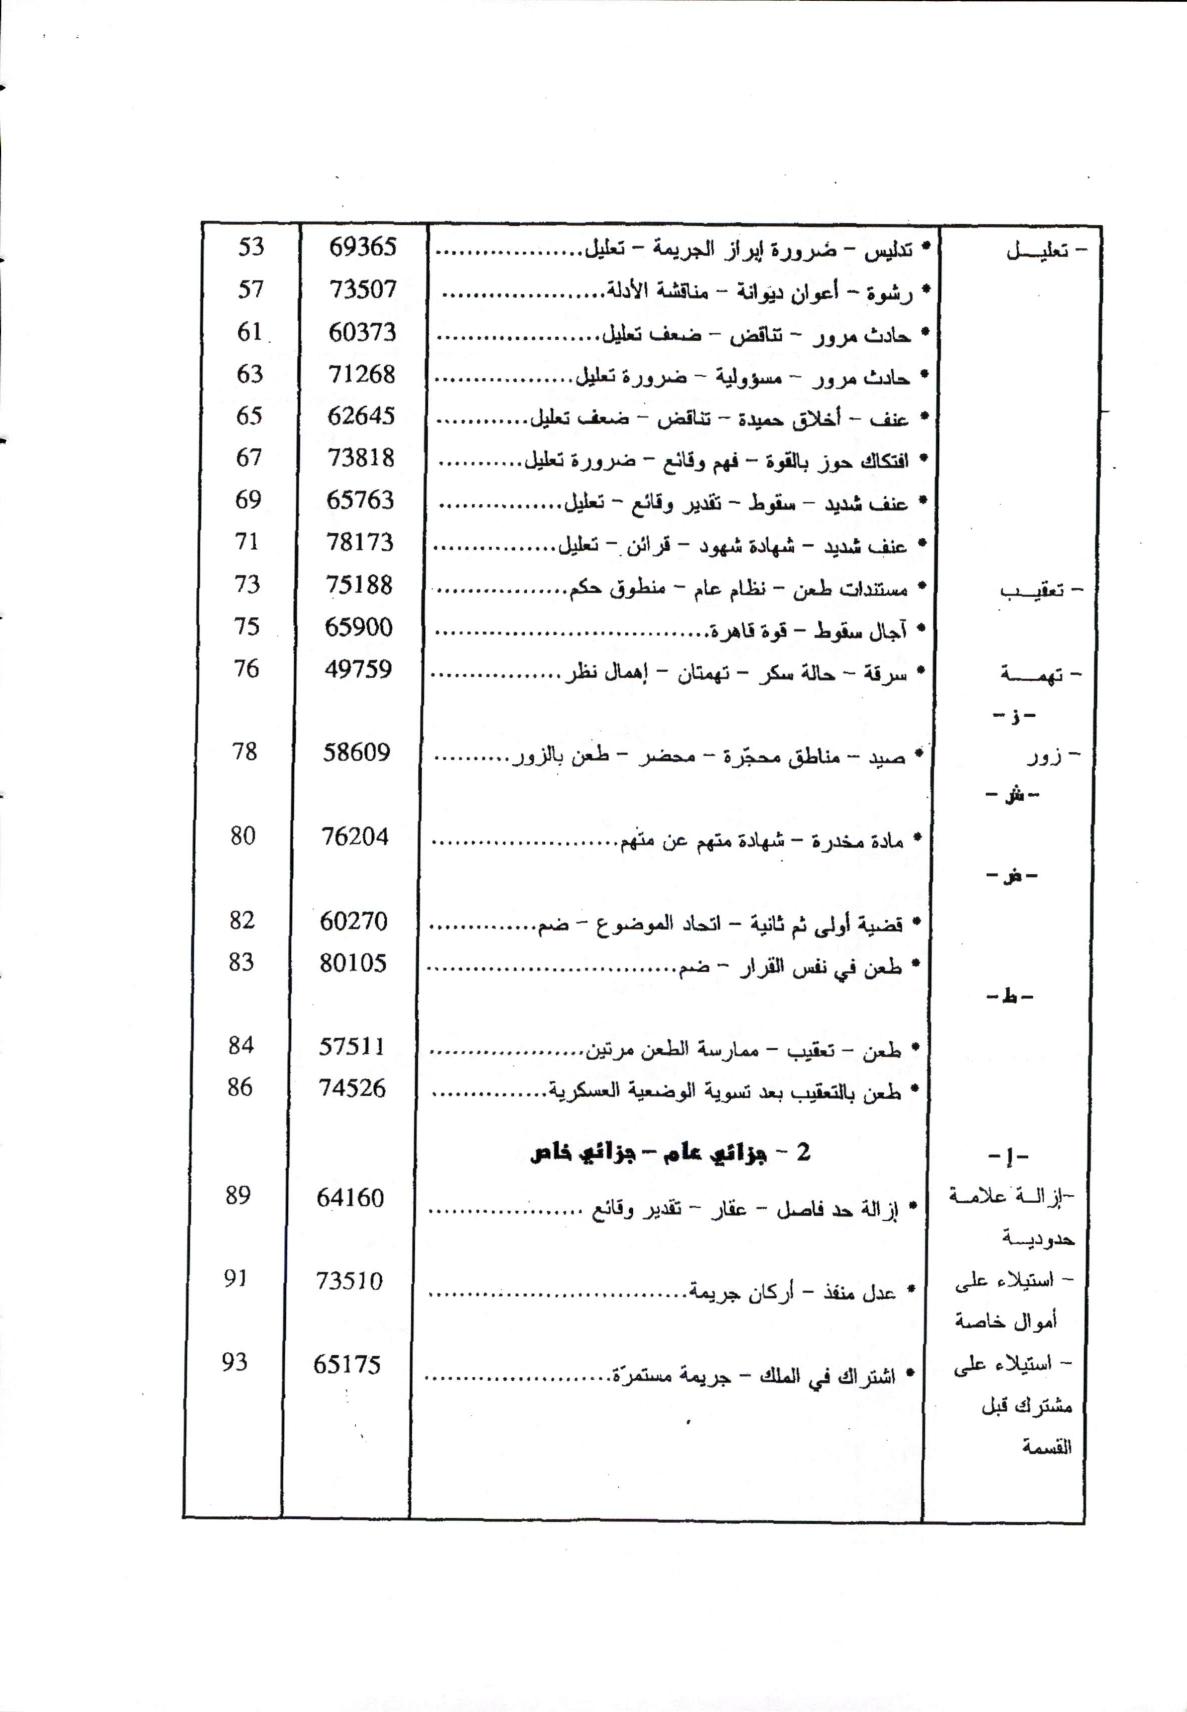 - تعليــل * تدليس - ضرورة إبراز الجريمة - تعليل................... 69365 53
* رشوة - أعوان ديوانة - مناقشة الأدلة..................... 73507 57
* حادث مرور - تناقض - ضعف تعليل..................... 60373 61
* حادث مرور - مسؤولية - ضرورة تعليل.................. 71268 63
* عنف - أخلاق حميدة - تناقض - ضعف تعليل............ 62645 65
* افتكاك حوز بالقوة - فهم وقائع - ضرورة تعليل........... 73818 67
* عنف شديد - سقوط - تقدير وقائع - تعليل................ 65763 69
* عنف شديد - شهادة شهود - قرائن - تعليل................ 78173 71
- تعقيــب * مستندات طعن - نظام عام - منطوق حكم................. 75188 73
* آجال سقوط - قوة قاهرة................................... 65900 75
- تهمـــة * سرقة - حالة سكر - تهمتان - إهمال نظر................. 49759 76
- ز -
- زور * صيد - مناطق محجّرة - محضر - طعن بالزور.......... 58609 78
- ش -
* مادة مخدرة - شهادة متهم عن متهم........................ 76204 80
- ض -
* قضية أولى ثم ثانية - اتحاد الموضوع - ضم.............. 60270 82
* طعن في نفس القرار - ضم................................ 80105 83
- ط -
* طعن - تعقيب - ممارسة الطعن مرتين.................... 57511 84
* طعن بالتعقيب بعد تسوية الوضعية العسكرية............... 74526 86
- إ - 2 - جزائي عام - جزائي خاص
-إزالــة علامــة * إزالة حد فاصل - عقار - تقدير وقائع .................... 64160 89
حدوديــة
- استيلاء على * عدل منفذ - أركان جريمة................................. 73510 91
أموال خاصة
- استيلاء على * اشتراك في الملك - جريمة مستمرّة........................ 65175 93
مشترك قبل
القسمة